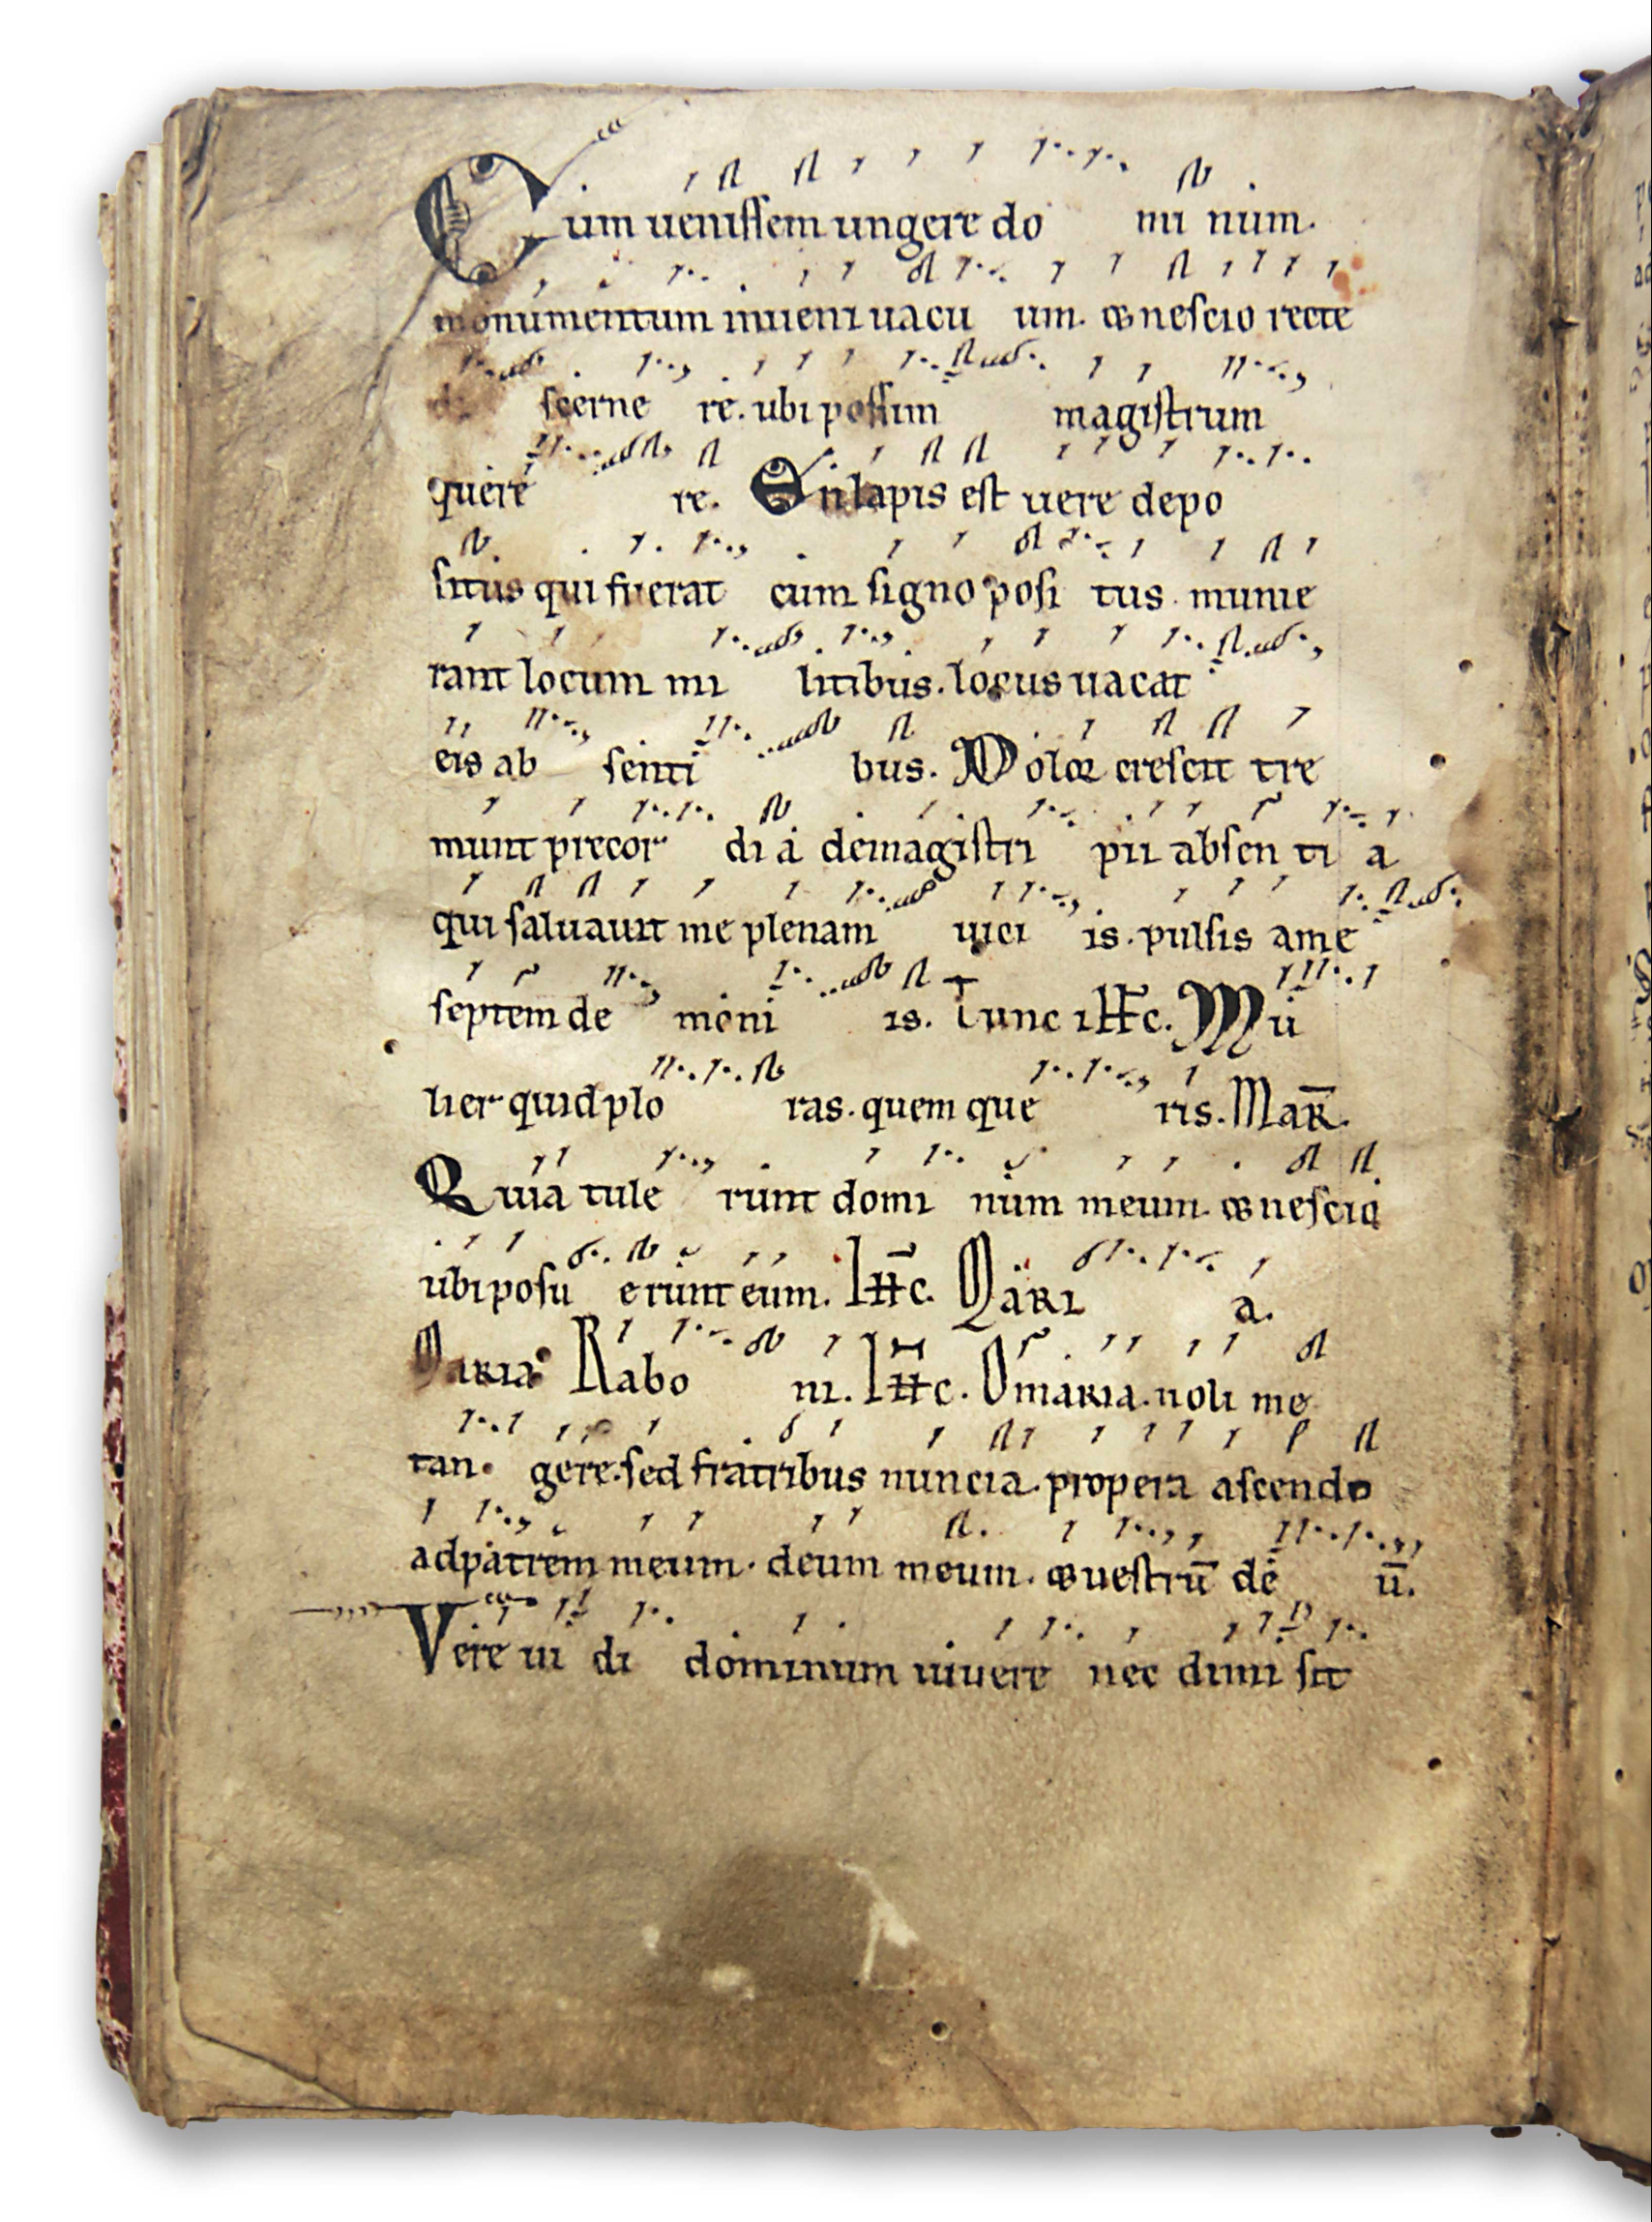 Cum ueniſſem ungere do mi num.
monumentum inueni uacu um. & neſcio recte
di ſcerne re. ubi poſſim magiſtrum
quere re. En lapis eſt uere depo
ſitus qui fuerat cum ſigno poſi tus. munie
rant locum mi litibus. locus uacat
eis ab ſenti bus. Dolor creſcit tre
munt precor di a de magiſtri pii abſen ti a
qui ſaluauit me plenam uici is. pulſis a me
ſeptem de moni is. Tunc iħc. Mu
lier quid plo ras. quem que ris. MaR̄.
Quia tule runt domi num meum. & neſcio
ubi poſu erunt eum. Iħc. MaRI a.
MaRIa Rabo ni. Iħc. O maRia. noli me
tan gere. ſed fratribus nuncia. propera aſcendo
ad patrem meum. deum meum. & ueſtrū de ū.
Vere ui di dominum uiuere nec dimi ſit